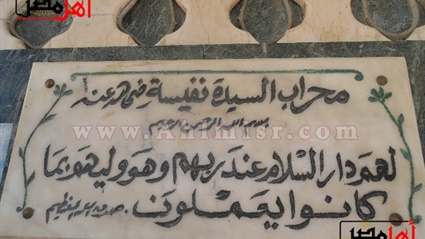 أهل مصر
محراب السيدة نفيسة رضى الله عنها
بسم الله الرحمن الرحيم
www.Ahlmisr.com
لهم دار السلام عند ربهم وهو وليهم بما
كانوا يعملون. صدق الله العظيم
أهل مصر